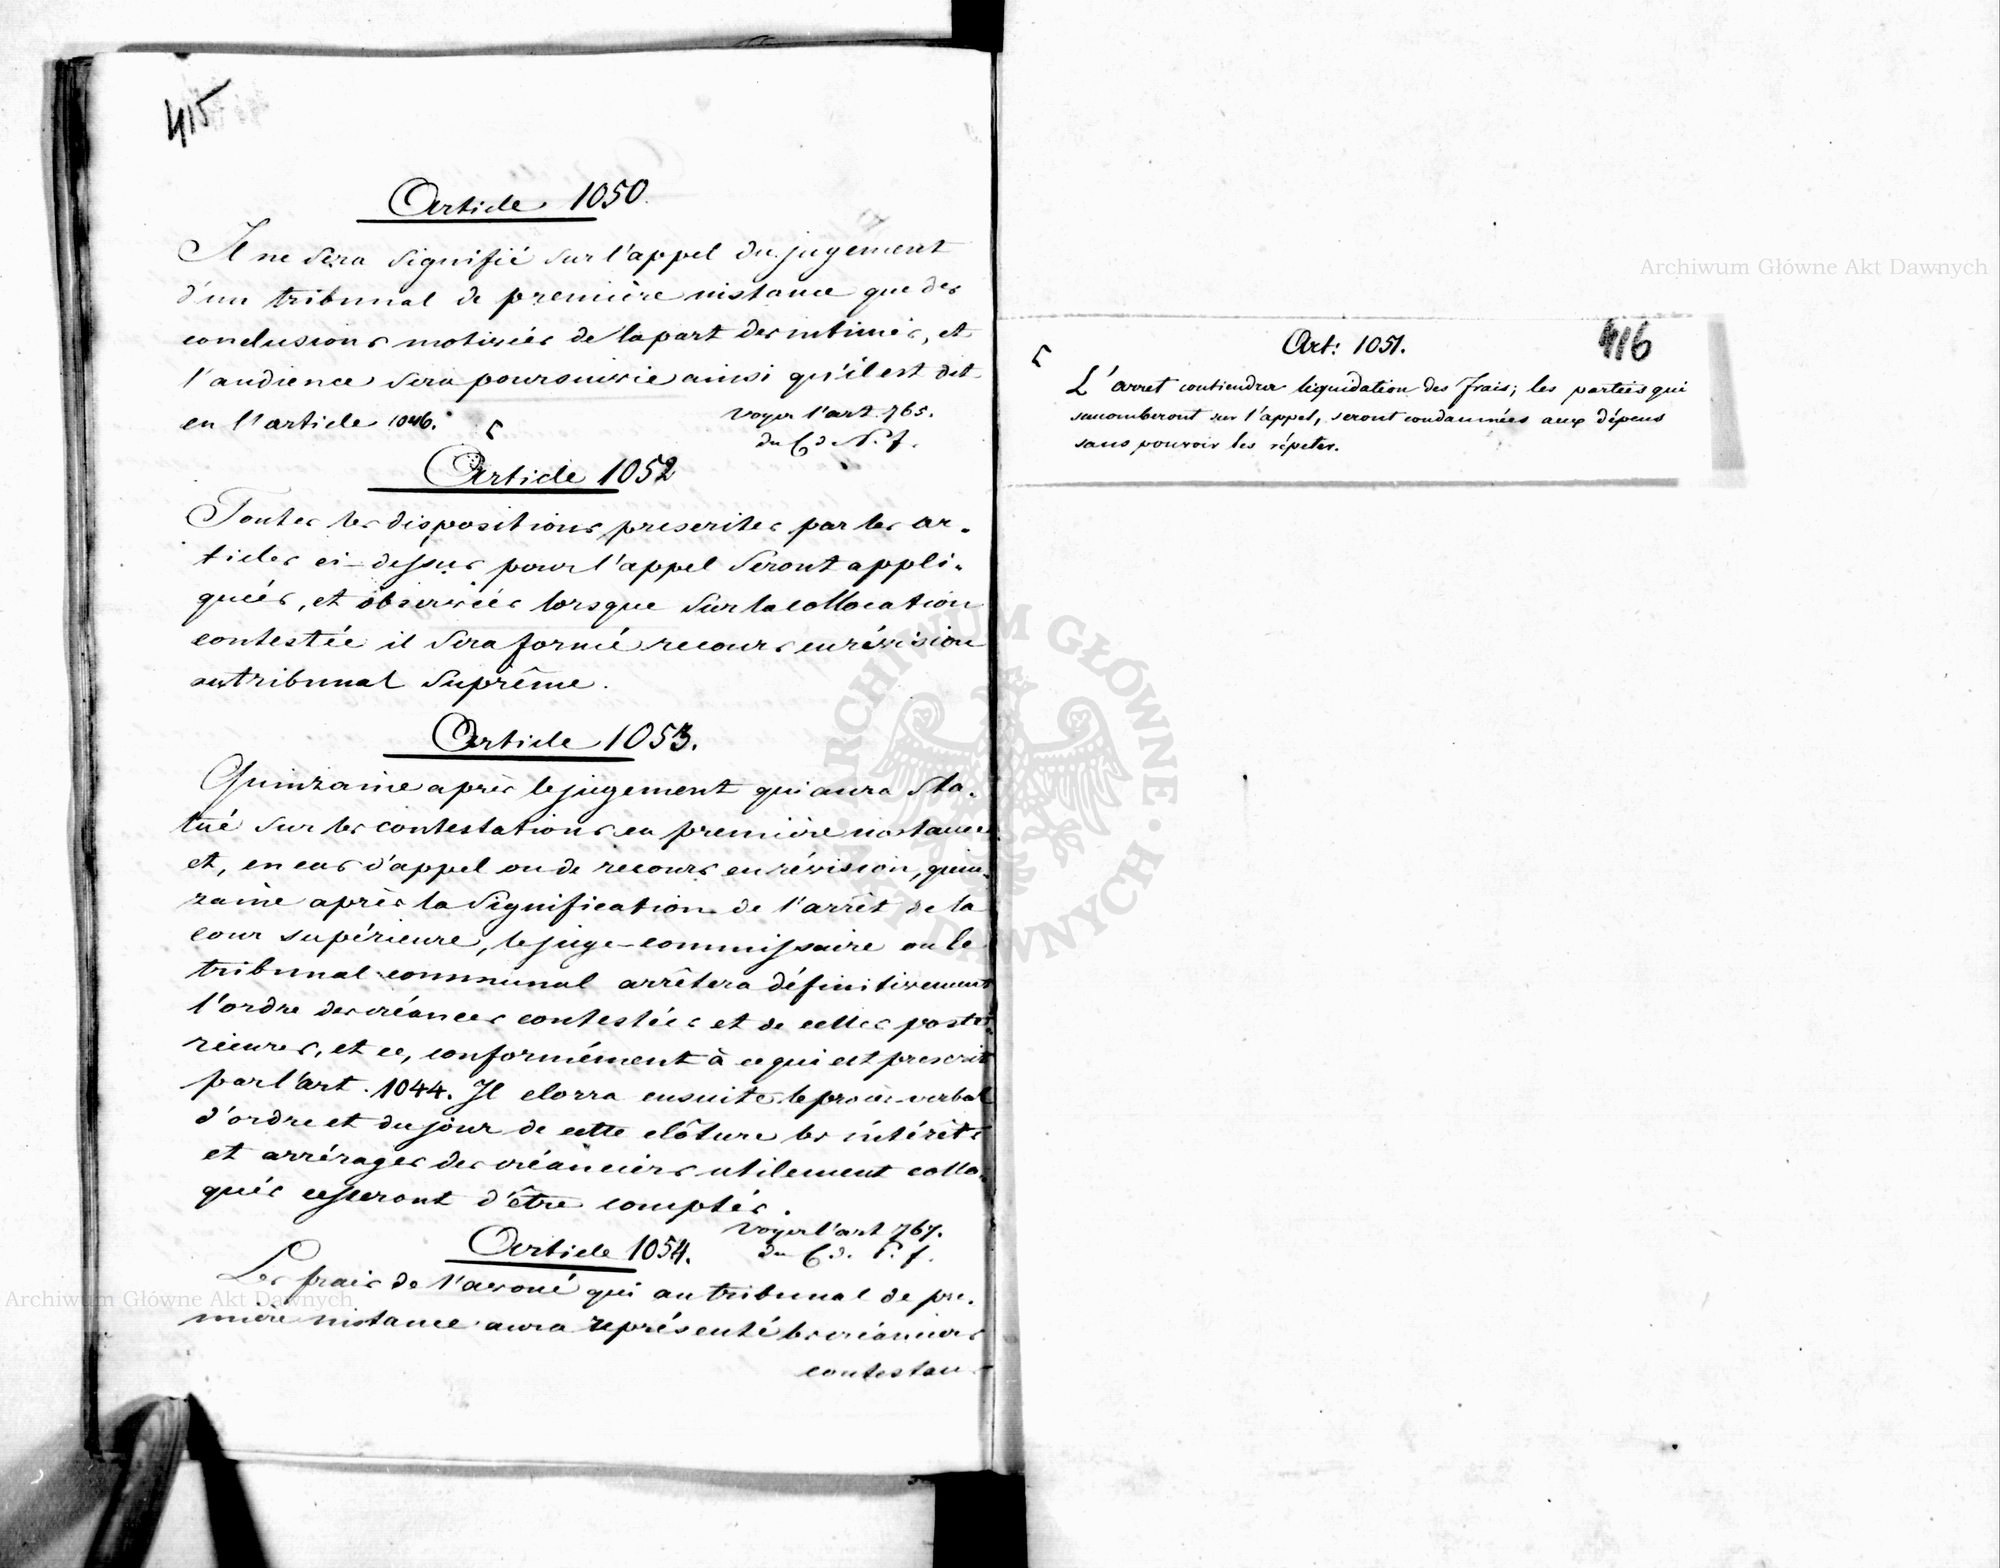 415
Article 1050.
Il ne sera signifié sur l'appel du jugement
d'un tribunal de première instance que des
conclusions motivées de la part des intimés, et
l'audience sera poursuivie ainsi qu'il est dit
en l'article 1046. ⌈
Voyez l'art. 765.
du C. d. P. f.
Article 1052
Toutes les dispositions prescrites par les ar-
ticles ci-dessus pour l'appel seront appli-
quées, et observées lorsque sur la collocation
contestée il sera formé recours en révision
au tribunal Suprême.
Article 1053.
Quinzaine après le jugement qui aura sta-
tué sur les contestations en première instance
et, en cas d'appel ou de recours en révision, quin-
zaine après la signification de l'arrêt de la
cour supérieure, le juge-commissaire ou le
tribunal communal arrêtera définitivement
l'ordre des créances contestées et de celles posté-
rieures, et ce, conformément à ce qui est prescrit
par l'art. 1044. Il clorra ensuite le procès-verbal
d'ordre et du jour de cette clôture les intérêts
et arrérages des créanciers utilement collo-
qués cesseront d'être comptés.
Voyez l'art 767.
du C. d. P. f.
Article 1054.
Les frais de l'avoué qui au tribunal de pre-
mière instance aura représenté les créanciers
contestan-
416
Art: 1051.
⌈ L'arret contiendra liquidation des frais; les parties qui
succomberont sur l'appel, seront condamnées aux dépens
sans pouvoir les répeter.
Archiwum Główne Akt Dawnych
Archiwum Główne Akt Dawnych
ARCHIWUM GŁÓWNE AKT DAWNYCH